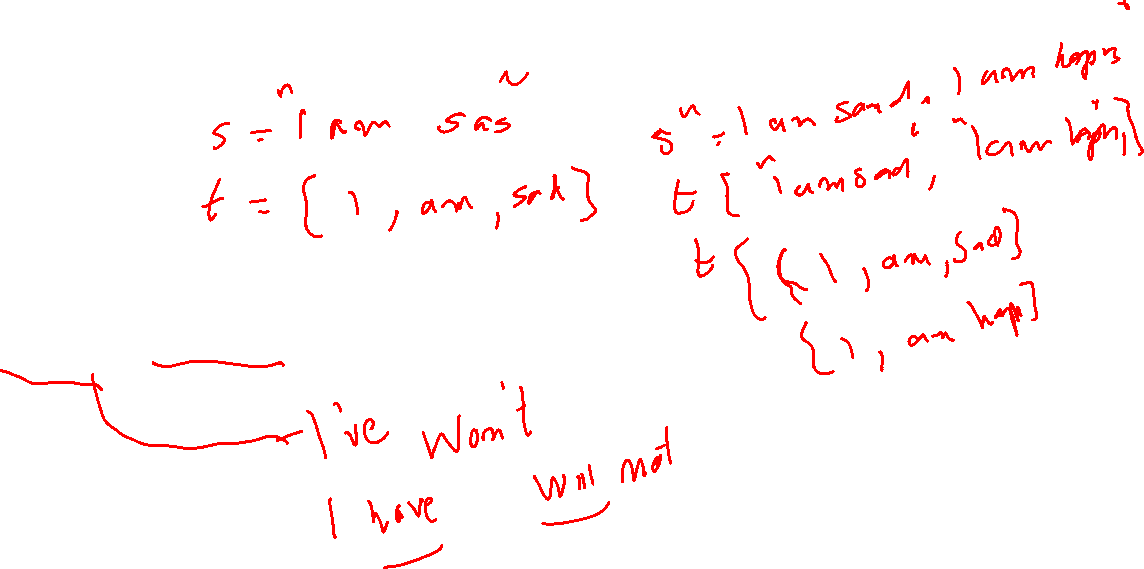 s = "I am sas"
t = { I, am, sad }
s" = I am sad. I am happy
t [ "I am sad", "I am happy" ]
t { { I, am, sad }
{ I, am happ }
I've Won't
I have Will not